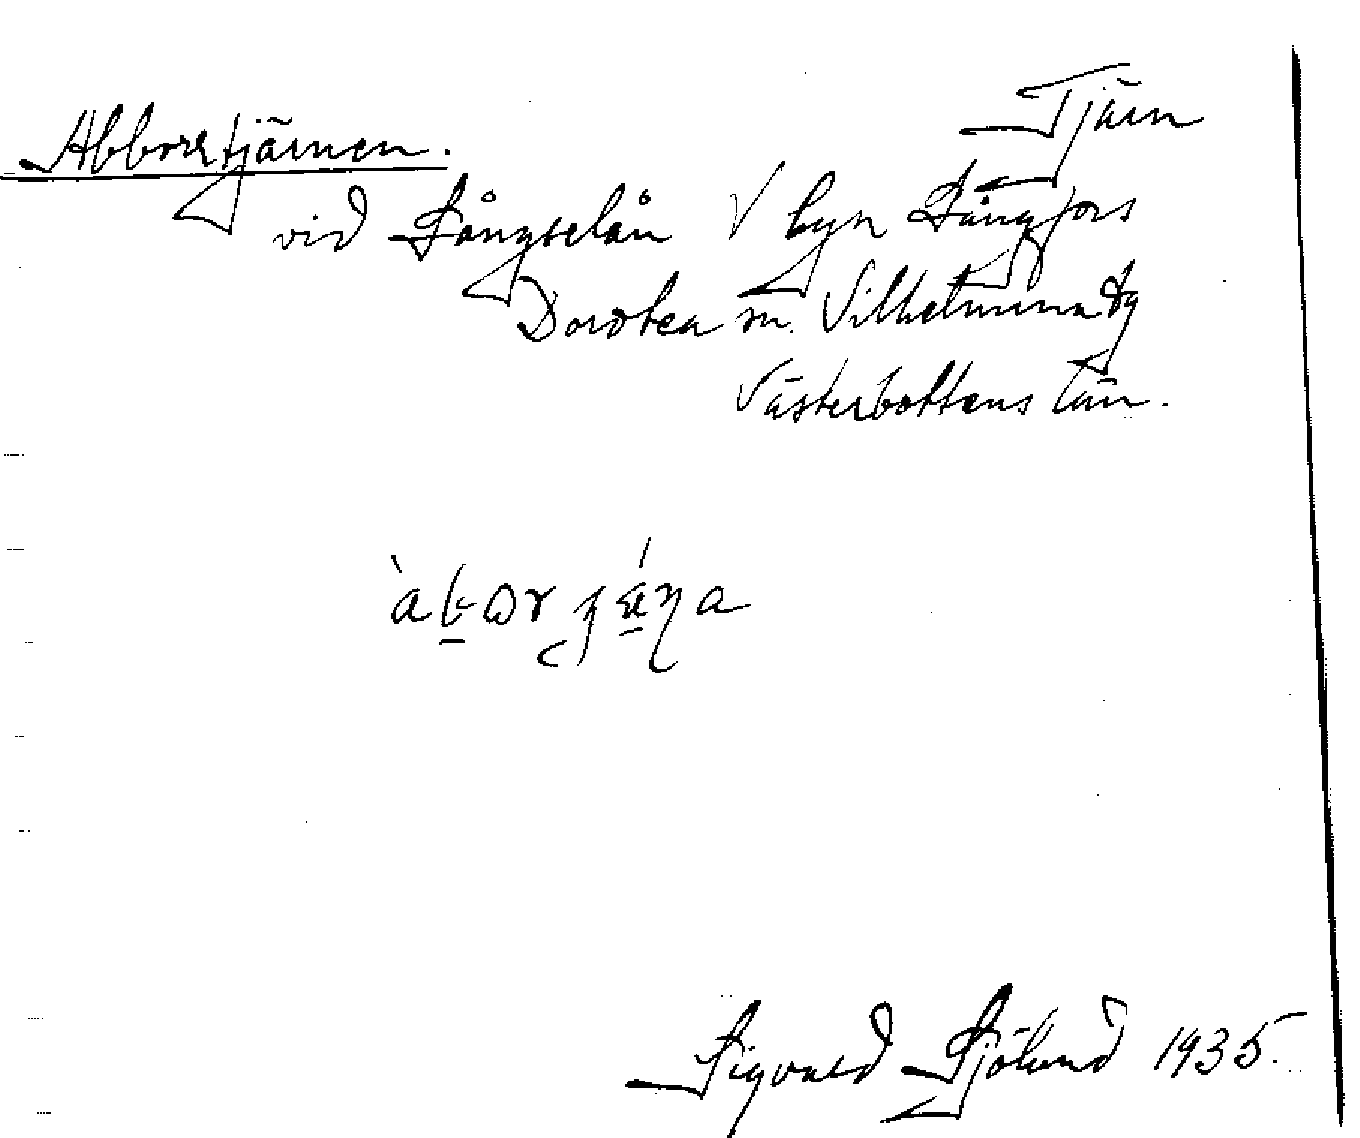 Tjärn
Abborrtjärnen.
vid Långselån V byn Långfors
Dorotea sn. Vilhelmina tg
Västerbottens län.
Sigvard Sjölund 1935.